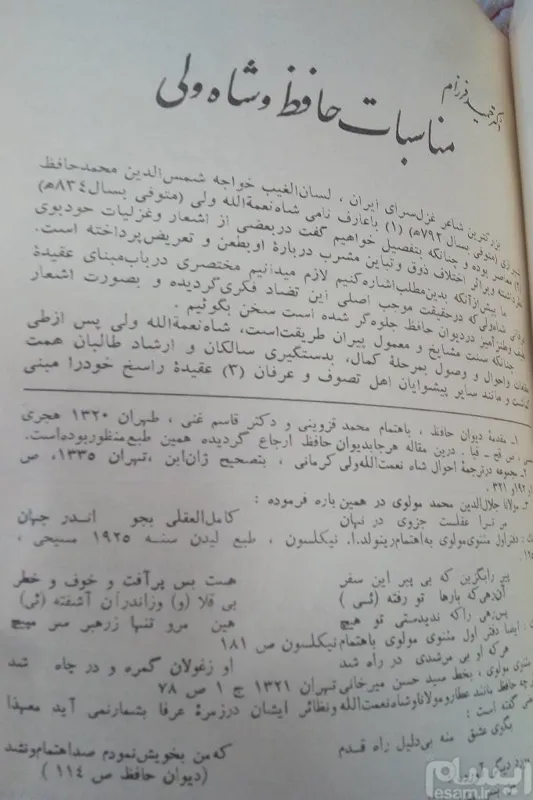 دکتر حمید فرزام
مناسبات حافظ و شاه ولی
بزرگترین شاعر غزل‌سرای ایران ، لسان‌الغیب خواجه شمس‌الدین محمد حافظ
شیرازی (متوفی بسال ۷۹۲ه‍) (۱) باعارف نامی شاه نعمة‌الله ولی (متوفی بسال ۸۳۴ه‍)
(۲) معاصر بوده و چنانکه بتفصیل خواهیم گفت دربعضی از اشعار وغزلیات خودبوی
نظر داشته وبراثر اختلاف ذوق وتباین مشرب دربارهٔ اوبطعن و تعریض پرداخته است.
ما پیش‌ازآنکه بدین‌مطلب‌اشاره‌کنیم لازم میدانیم مختصری درباب‌مبنای عقیدهٔ
عرفانی شاه‌ولی که درحقیقت موجب اصلی این تضاد فکری‌گردیده و بصورت اشعار
وطنزآمیز دردیوان حافظ جلوه‌گر شده است سخن بگوئیم .
چنانکه سنت مشایخ و معمول پیران طریقت‌است، شاه‌نعمة‌الله ولی پس ازطی
مقامات واحوال و وصول بمرحلهٔ کمال، بدستگیری سالکان و ارشاد طالبان همت
گماشت و مانند سایر پیشوایان اهل تصوف و عرفان (۳) عقیدهٔ راسخ خودرا مبنی
۱ـ مقدمهٔ دیوان حافظ ، باهتمام محمد قزوینی و دکتر قاسم غنی ، طهران ۱۳۲۰ هجری
ص قح ـ قیا . درین مقاله هرجابدیوان حافظ ارجاع گردیده همین طبع‌منظوربوده‌است.
۲ـ مجموعه درترجمهٔ احوال شاه نعمت‌الله‌ولی کرمانی ، بتصحیح ژان‌ابن ،تهران ۱۳۳۵، ص
و ۳۲۱ .
۳ـ مولانا جلال‌الدین محمد مولوی در همین باره فرموده :
مر ترا عقلست جزوی در نهان کامل‌العقلی بجو اندر جهان
دفتر اول مثنوی مولوی به‌اهتمام‌رینولد.ا. نیکلسون ، طبع لیدن سنه ۱۹۲۵ مسیحی ،
پیر رابگزین که بی پیر این سفر هست بس پرآفت و خوف و خطر
آن‌رهی‌که بارها تو رفته (ئی) بی قلا (و) وزاندران آشفته (ئی)
پس‌رهی راکه ندیدستی تو هیچ هین مرو تنها زرهبر سر مپیچ
ایضا دفتر اول مثنوی مولوی باهتمام نیکلسون ص ۱۸۱
هرکه او بی مرشدی در راه شد او زغولان گمره و در چاه شد
مثنوی مولوی ، بخط سید حسن میرخانی تهران ۱۳۲۱ ج ۱ ص ۷۸
چه حافظ مانند عطارومولاناوشاه‌نعمت‌الله ونظائر ایشان درزمرهٔ عرفا بشمارنمی آید معهذا
گفته است :
بکوی عشق منه بی‌دلیل راه قدم که‌من بخویش‌نمودم صداهتمام‌ونشد
(دیوان حافظ ص ۱۱۴ )
ایسام
esam.ir